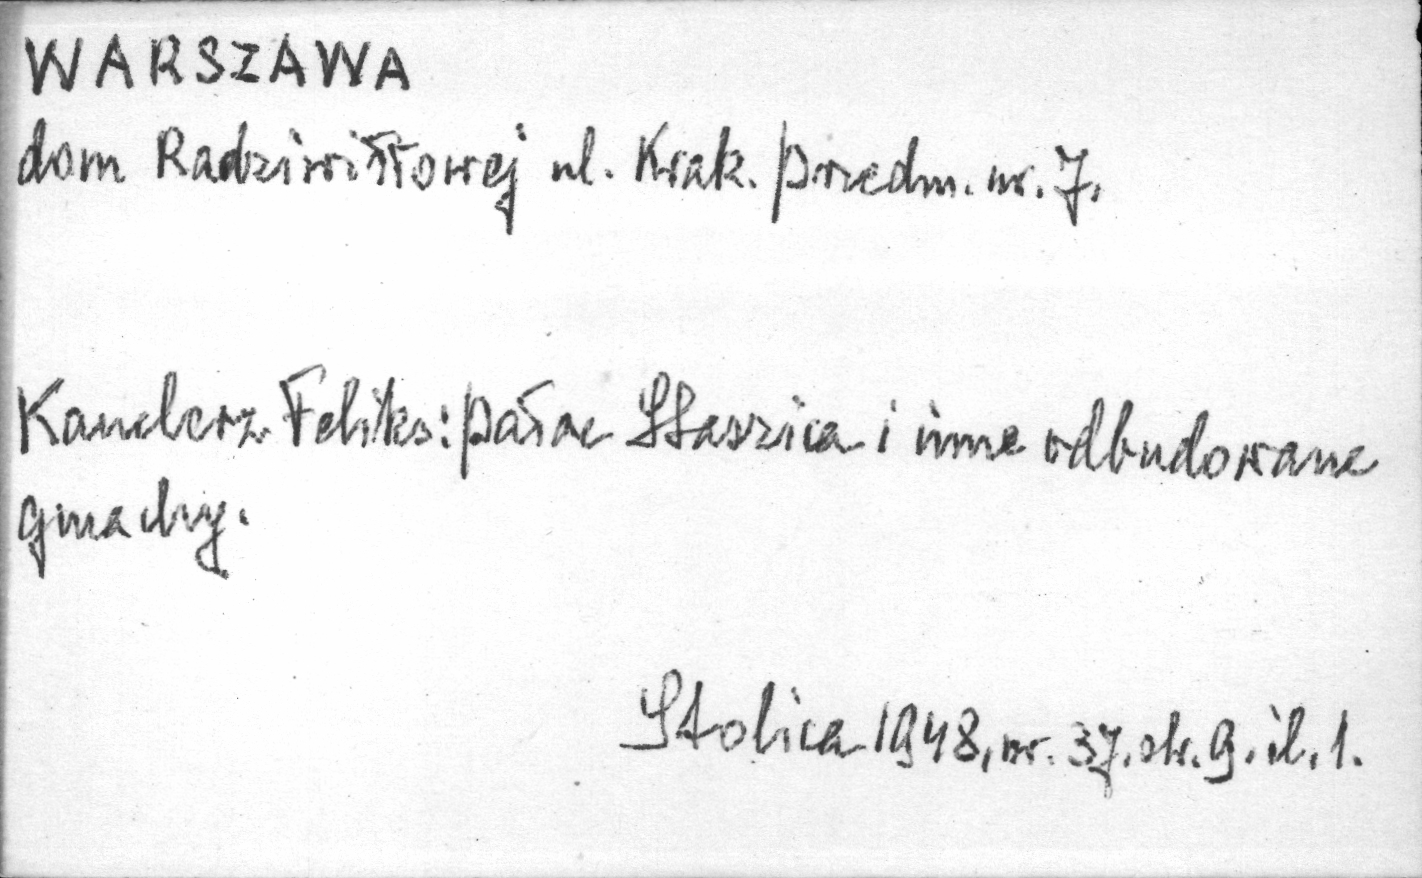 WARSZAWA
dom Radziwiłłowej ul. Krak. Przedm. nr. 7.
Kanclerz Feliks: Pałac Staszica i inne odbudowane
gmachy.
Stolica 1948, nr. 37. str. 9. il. 1.